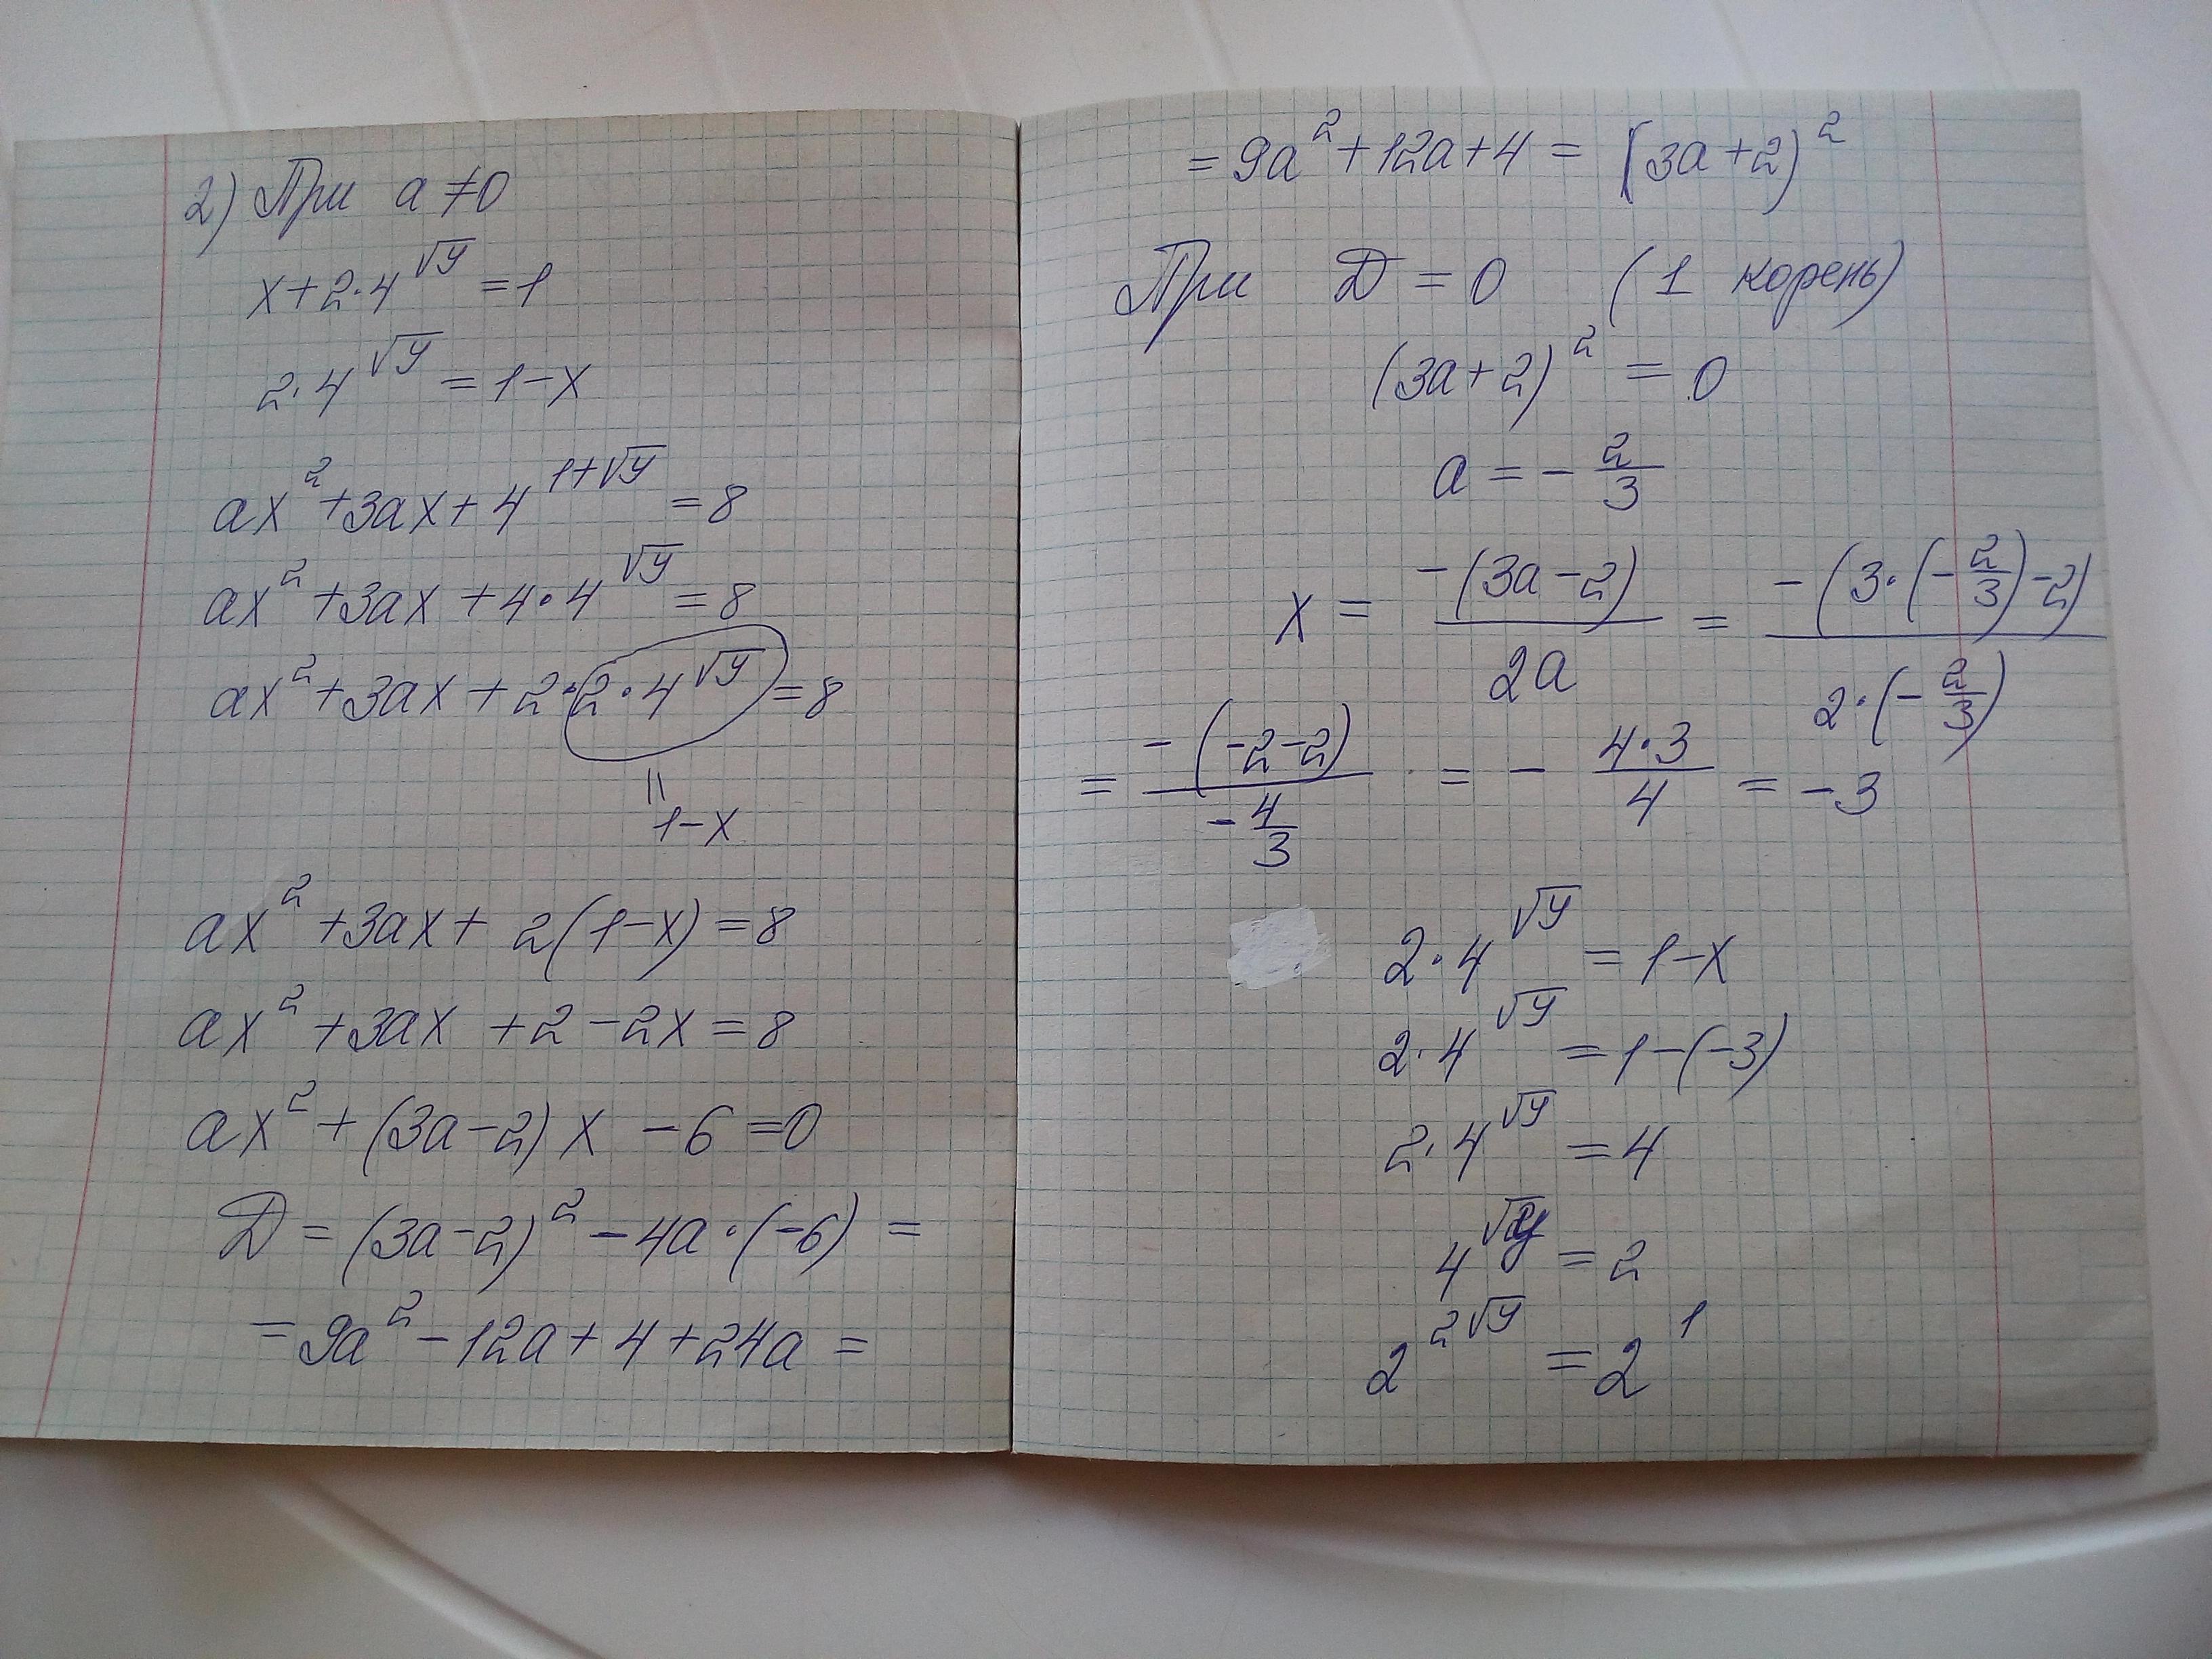 2) При a ≠ 0
x + 2·4^√y = 1
2·4^√y = 1 - x
ax² + 3ax + 4^(1+√y) = 8
ax² + 3ax + 4·4^√y = 8
ax² + 3ax + 2·2·4^√y = 8
||
1 - x
ax² + 3ax + 2(1-x) = 8
ax² + 3ax + 2 - 2x = 8
ax² + (3a-2)x - 6 = 0
D = (3a-2)² - 4a·(-6) =
= 9a² - 12a + 4 + 24a =
= 9a² + 12a + 4 = (3a+2)²
При D = 0 (1 корень)
(3a+2)² = 0
a = -2/3
x = -(3a-2)/2a = -(3·(-2/3)-2)/2·(-2/3)
= -(-2-2)/-4/3 = - 4·3/4 = -3
2·4^√y = 1-x
2·4^√y = 1-(-3)
2·4^√y = 4
4^√y = 2
2^2√y = 2^1